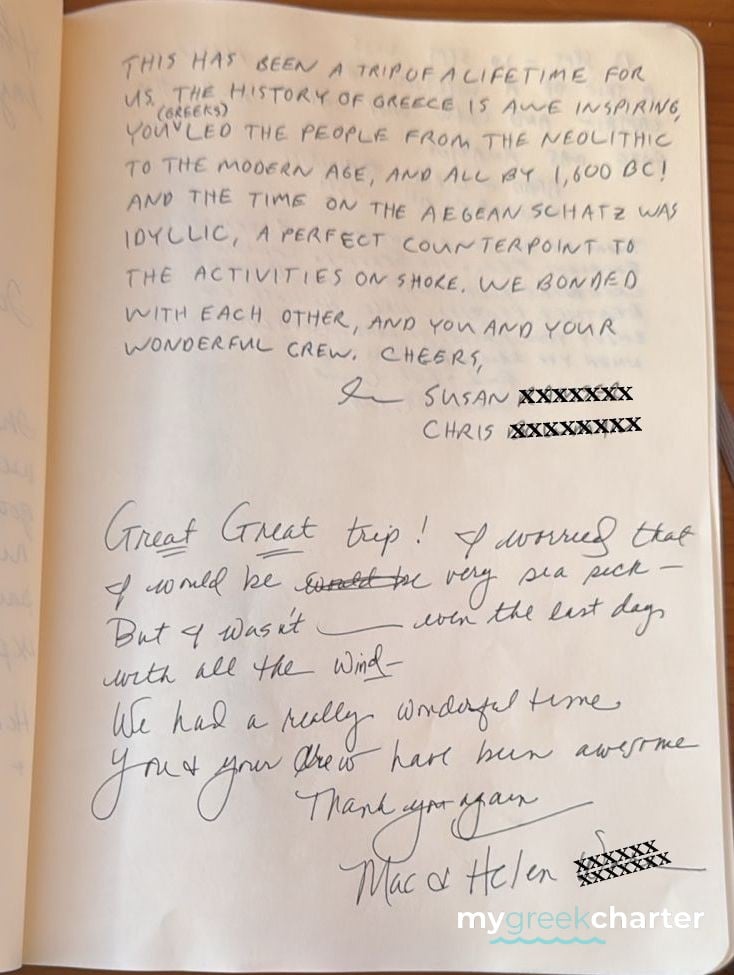 THIS HAS BEEN A TRIP OF A LIFETIME FOR
US. THE HISTORY OF GREECE IS AWE INSPIRING,
(GREEKS)
YOU LED THE PEOPLE FROM THE NEOLITHIC
TO THE MODERN AGE, AND ALL BY 1,600 BC!
AND THE TIME ON THE AEGEAN SCHATZ WAS
IDYLLIC, A PERFECT COUNTERPOINT TO
THE ACTIVITIES ON SHORE. WE BONDED
WITH EACH OTHER, AND YOU AND YOUR
WONDERFUL CREW. CHEERS,
SUSAN XXXXXXX
CHRIS XXXXXXXX
Great Great trip! I worried that
I would be would be very sea sick —
But I wasn't — even the last days
with all the wind —
We had a really wonderful time
You & your crew have been awesome
Thank you again
Mac & Helen XXXXXX
XXXXXXX
mygreekcharter